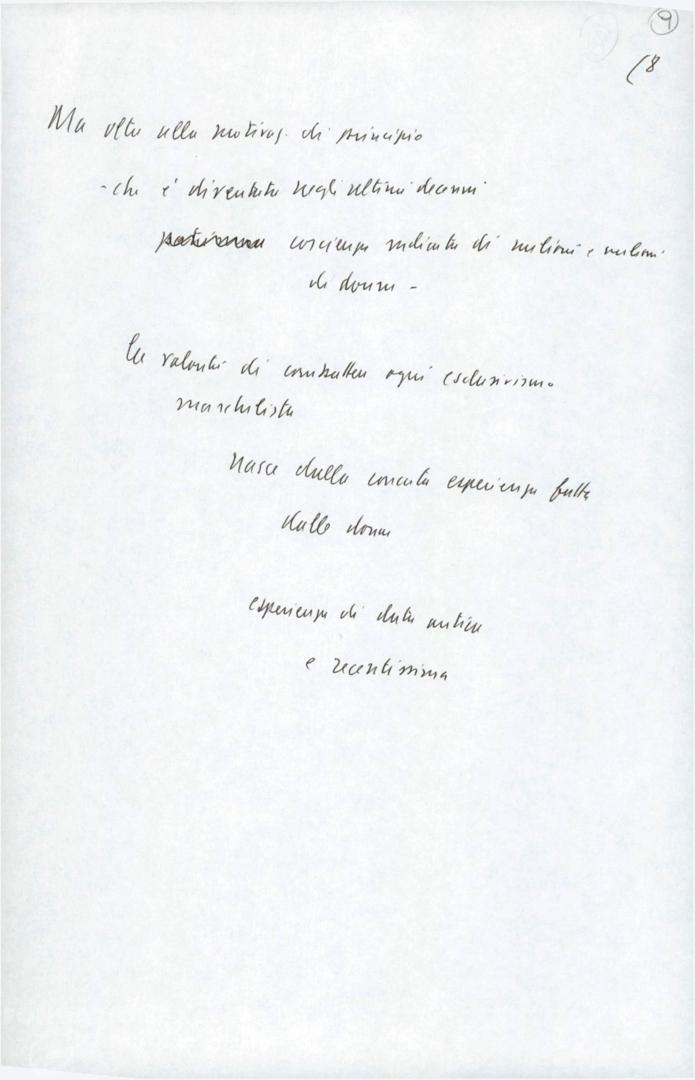 9
(8
Ma oltre alla motivaz. di principio
- che è diventata negli ultimi decenni
patrimonio coscienza radicata di milioni e milioni
di donne -
la volontà di combattere ogni esclusivismo
maschilista
nasce dalla concreta esperienza fatta
dalle donne
esperienza di data antica
e recentissima